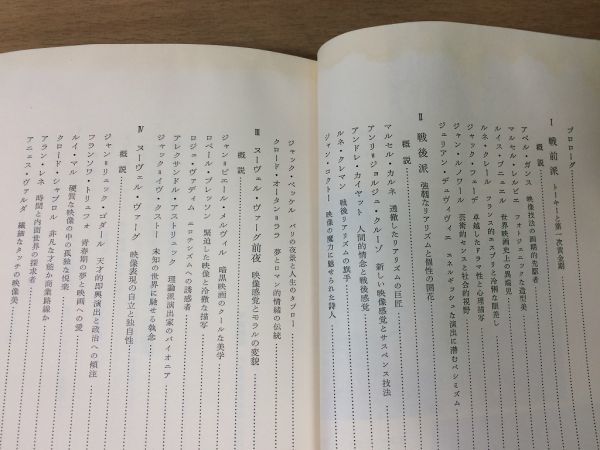 プロローグ
I 戦前派 トーキーと第一次黄金期
概説
アベル・ガンス 映像技法の画期的先駆者
マルセル・レルビエ フォトジェニックな造型美
ルイス・ブニュエル 世界映画史上の異端児
ルネ・クレール フランス的エスプリと冷徹な眼差し
ジャック・フェーデ 卓越したドラマ性と心理描写
ジャン・ルノワール 芸術的センスと社会的視野
ジュリアン・デュヴィヴィエ エネルギッシュな演出に潜むペシミズム
II 戦後派 強靱なリアリズムと個性の開花
概説
マルセル・カルネ 透徹したリアリズムの巨匠
アンリ=ジョルジュ・クルーゾ 新しい映像感覚とサスペンス技法
アンドレ・カイヤット 人間的情念と戦後感覚
ルネ・クレマン 戦後リアリズムの旗手
ジャン・コクトー 映像の魔力に魅せられた詩人
ジャック・ベッケル パリの夜景と人生のタブロー
クロード・オータン=ララ 夢とロマン的情緒の伝統
III ヌーヴェル・ヴァーグ前夜 映像感覚とモラルの変貌
概説
ジャン=ピエール・メルヴィル 暗黒映画のクールな美学
ロベール・ブレッソン 緊迫した映像と冷徹な描写
ロジェ・ヴァディム エロチシズムへの誘惑者
アレクサンドル・アストリュック 理論派演出家のパイオニア
ジャック=イヴ・クストー 未知の世界に馳せる執念
IV ヌーヴェル・ヴァーグ 映像表現の自立と独自性
概説
ジャン=リュック・ゴダール 天才的即興演出と政治への傾注
フランソワ・トリュフォ 青春期の夢と映画への愛
ルイ・マル 硬質な映像の中の孤独な悦楽
クロード・シャブロル 非凡な才能か商業路線か
アラン・レネ 時間と内面世界の探求者
アニェス・ヴァルダ 繊細なタッチの映像美